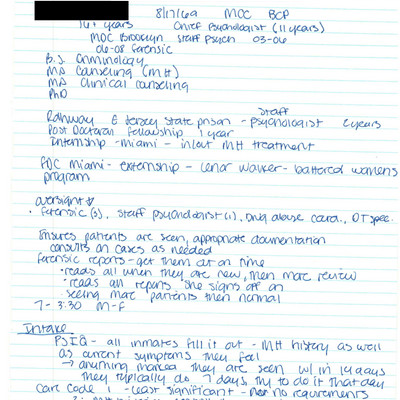 8/17/69 MDC BCP
14+ years Chief Psychologist (11 years)
MDC Brooklyn Staff Psych 03-06
06-08 forensic
B.S. Criminology
MA Counseling (MH)
MA Clinical counseling
PhD
Rahway E Jersey State prison - staff psychologist 2 years
Post Doctoral Fellowship 1 year
Internship - Miami - in/out MH treatment
FDC Miami - externship - Lenor Walker - battered womens
program
oversight
• Forensic (3), Staff psychologist (1), Drug abuse coord., DT spec.
Ensures patients are seen, appropriate documentation
consults on cases as needed
forensic reports - get them out on time
• reads all when they are new, then more review
• reads all reports she signs off on
- seeing more patients then normal
7 - 3:30 M-F
Intake
PSIQ - all inmates fill it out - MH history as well
as current symptoms they feel
→ anything marked they are seen w/in 14 days
they typically do 7 days, try to do it that day
Care Code 1 - least significant - no requirements